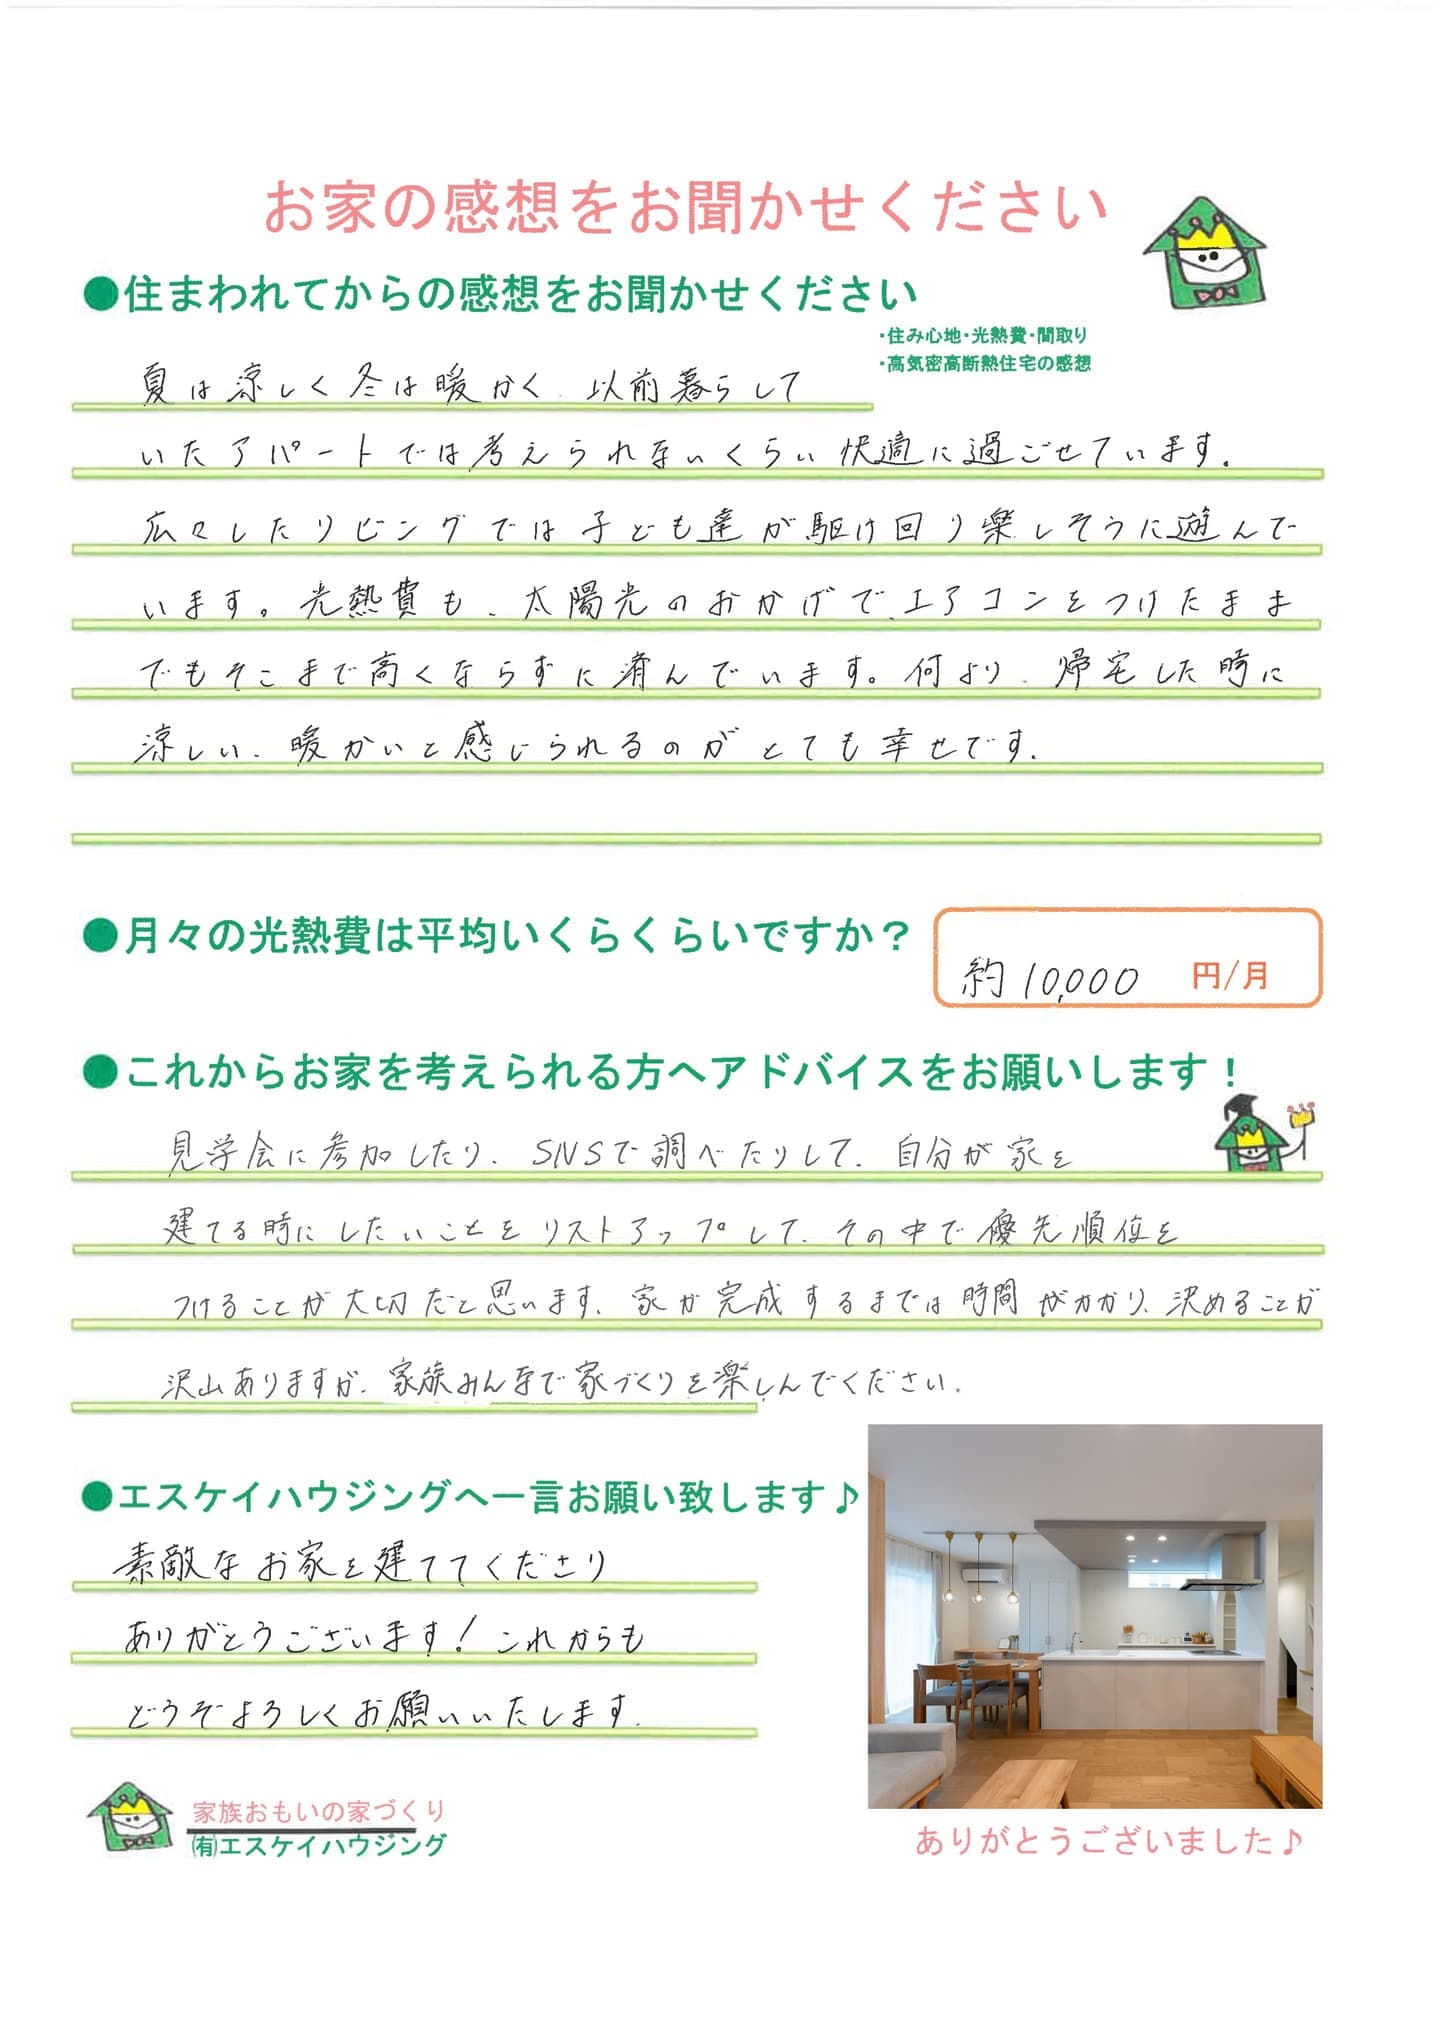 お家の感想をお聞かせください
●住まわれてからの感想をお聞かせください
・住み心地・光熱費・間取り
・高気密高断熱住宅の感想
夏は涼しく冬は暖かく、以前暮らして
いたアパートでは考えられないくらい快適に過ごせています。
広々したリビングでは子ども達が駆け回り楽しそうに遊んで
います。光熱費も、太陽光のおかげで、エアコンをつけたまま
でもそこまで高くならずに済んでいます。何より、帰宅した時に
涼しい、暖かいと感じられるのがとても幸せです。
●月々の光熱費は平均いくらくらいですか？
約10,000 円/月
●これからお家を考えられる方へアドバイスをお願いします！
見学会に参加したり、SNSで調べたりして、自分が家を
建てる時にしたいことをリストアップして、その中で優先順位を
つけることが大切だと思います。家が完成するまでは時間がかかり、決めることが
沢山ありますが、家族みんなで家づくりを楽しんでください。
●エスケイハウジングへ一言お願い致します♪
素敵なお家を建ててくださり
ありがとうございます！これからも
どうぞよろしくお願いいたします。
家族おもいの家づくり
㈲エスケイハウジング
ありがとうございました♪